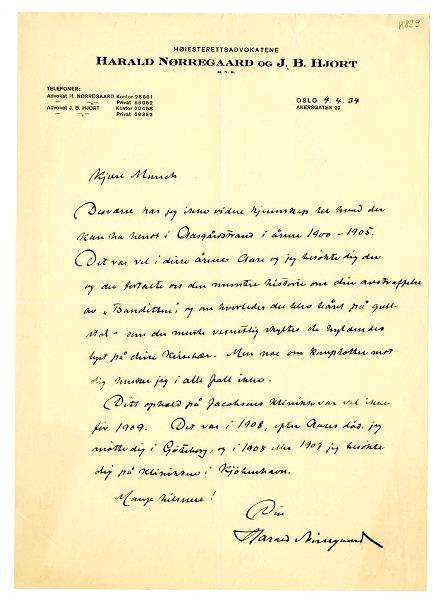 K829
HØIESTERETTSADVOKATENE
HARALD NØRREGAARD OG J. B. HJORT
M. N. S.
TELEFONER:
Advokat H. NØRREGAARD Kontor 26001
— „ — Privat 68082
Advokat J. B. HJORT Kontor 20458
— „ — Privat 58382
OSLO 4.4.34
AKERSGATEN 20
Kjære Munch
Desværre har jeg intet videre kjennskap til hvad der
kan ha hendt i Aasgårdstrand i årene 1900 – 1905.
Det var vel i disse årene Aase og jeg besøkte dig der
og du fortalte oss den muntre historie om din avstraffelse
av "Banditten", og om hvorledes du blev båret på gull-
stol – som du måtte vesentlig skyldes de hyldendes
syn på dine Men noe om komplotter mot
dig husker jeg i alle fall intet.
Ditt ophold på Jacobsens Klinikk var vel intet
før 1909. Det var i 1908, efter Aases død, jeg
møtte dig i Göteborg, og i 1908 eller 1909 jeg besøkte
dig på klinikken i Kjøbenhavn.
Mange hilsener!
Din
Harald Nørregaard